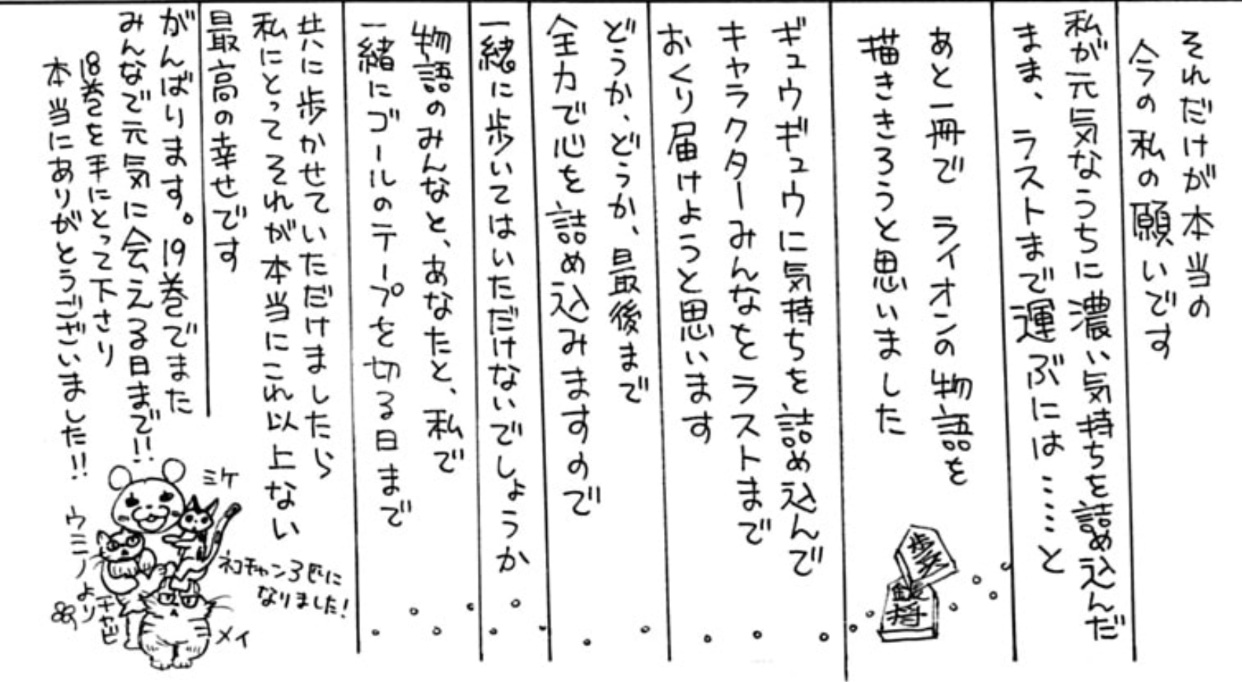 それだけが本当の
今の私の願いです
私が元気なうちに濃い気持ちを詰め込んだ
まま、ラストまで運ぶには……と
あと一冊で ライオンの物語を
描ききろうと思いました
ギュウギュウに気持ちを詰め込んで
キャラクターみんなをラストまで
おくり届けようと思います
どうか、どうか、最後まで
全力で心を詰め込みますので
一緒に歩いてはいただけないでしょうか
物語のみんなと、あなたと、私で
一緒にゴールのテープを切る日まで
共に歩かせていただけましたら
私にとってそれが本当にこれ以上ない
最高の幸せです
がんばります。19巻でまた
みんなで元気に会える日まで!!
18巻を手にとって下さり
本当にありがとうございました!!
歩
将
ミケ
ネコチャン3匹に
なりました!
ウミノより
チャビ
メイ